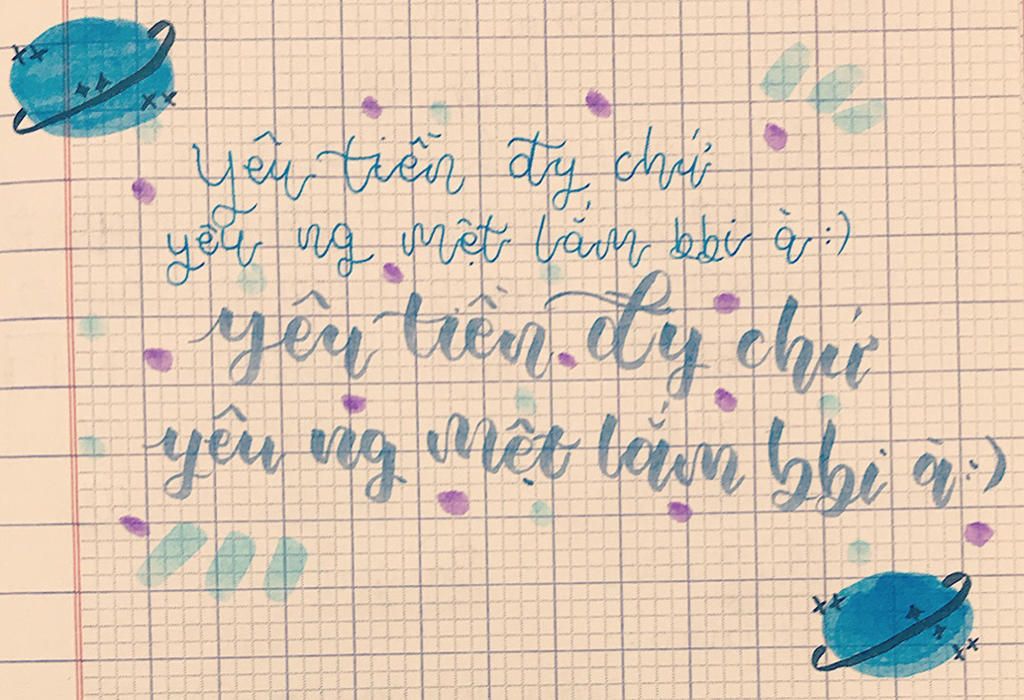 yêu tiền đy chứ
yêu ng mệt lắm bbi à :)
yêu tiền đy chứ
yêu ng mệt lắm bbi à :)